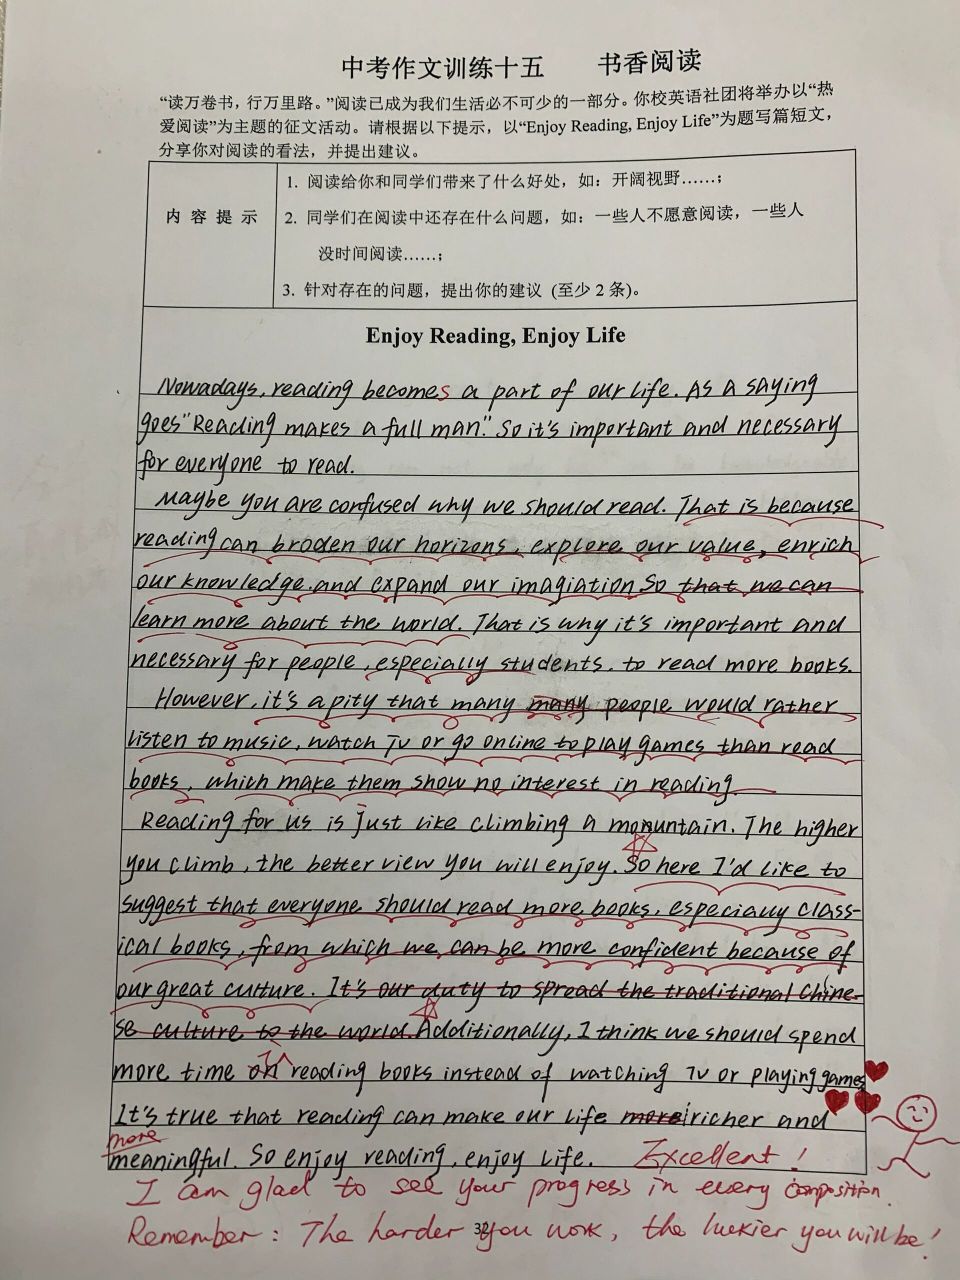 中考作文训练十五 书香阅读
“读万卷书，行万里路。”阅读已成为我们生活必不可少的一部分。你校英语社团将举办以“热
爱阅读”为主题的征文活动。请根据以下提示，以“Enjoy Reading, Enjoy Life”为题写篇短文，
分享你对阅读的看法，并提出建议。
内 容 提 示
1. 阅读给你和同学们带来了什么好处，如：开阔视野……；
2. 同学们在阅读中还存在什么问题，如：一些人不愿意阅读，一些人
没时间阅读……；
3. 针对存在的问题，提出你的建议 (至少 2 条)。
Enjoy Reading, Enjoy Life
Nowadays, reading becomes a part of our life. As a saying
goes "Reading makes a full man." So it's important and necessary
for everyone to read.
Maybe you are confused why we should read. That is because
reading can broden our horizons, explore our value, enrich
our knowledge, and expand our imagiation so that we can
learn more about the world. That is why it's important and
necessary for people, especially students, to read more books.
However, it's a pity that many many people would rather
listen to music, watch TV or go online to play games than read
books, which make them show no interest in reading.
Reading for us is just like climbing a monuntain. The higher
you climb, the better view you will enjoy. So here I'd like to
suggest that everyone should read more books, especially class-
ical books, from which we can be more confident because of
our great culture. It's our duty to spread the traditional Chine-
se culture to the world. Additionally, I think we should spend
more time on reading books instead of watching TV or playing games
It's true that reading can make our life more richer and
more
meaningful. So enjoy reading, enjoy life. Excellent!
I am glad to see your progress in every composition.
Remember: The harder you work, the luckier you will be!
32